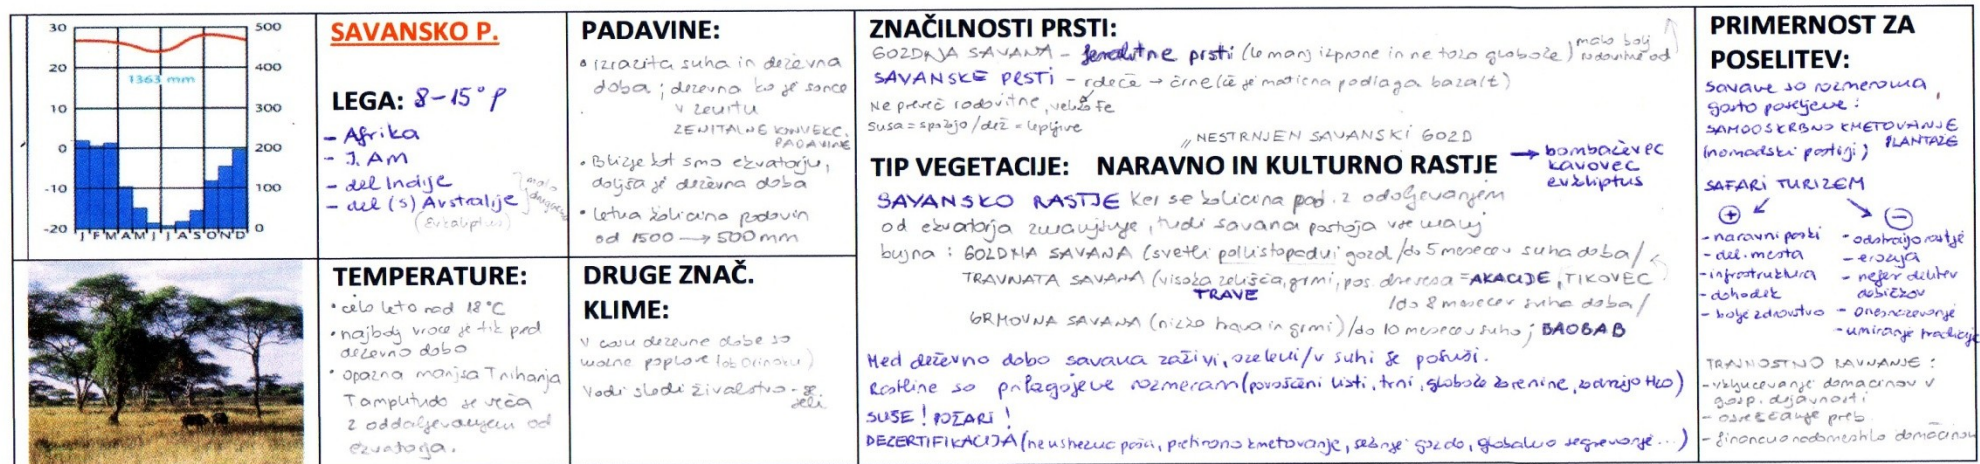 30
20
10
0
-10
-20
500
400
300
200
100
0
1363 mm
J F M A M J J A S O N D
SAVANSKO P.
LEGA: 8-15° P
- Afrika
- J. Am
- del Indije
- del (S) Avstralije } malo drugačno
(Evkaliptus)
TEMPERATURE:
• celo leto nad 18°C
• najbolj vroče je tik pred
deževno dobo
• opazna manjša T nihanja
T amplituda se veča
z oddaljevanjem od
ekvatorja.
PADAVINE:
• izrazita suha in deževna
doba; deževna ko je sonce
v zenitu
ZENITALNE KONVEKC.
PADAVINE
• Bližje kot smo ekvatorju,
daljša je deževna doba
• letna količina padavin
od 1500 → 500 mm
DRUGE ZNAČ.
KLIME:
V času deževne dobe so
možne poplave (ob Orinoku)
Vodi sledi živalstvo - se
seli
ZNAČILNOSTI PRSTI:
GOZDNA SAVANA - feralitne prsti (le manj izprane in ne tako globoke) malo bolj rodovitne od
SAVANSKE PRSTI - rdeče → črne (če je matična podlaga bazalt)
Ne preveč rodovitne, veliko Fe
susa = spokajo / dež = lepljive
„NESTRNJEN SAVANSKI GOZD
TIP VEGETACIJE: NARAVNO IN KULTURNO RASTJE → bombaževec
kavovec
evkliptus
SAVANSKO RASTJE ker se količina pad. z odaljevanjem
od ekvatorja zmanjšuje, tudi savana postaja vse manj
bujna: GOZDNA SAVANA (svetli pollistopadni gozd / do 5 mesecev suha doba /
TRAVNATA SAVANA (visoka zelišča, grmi, pos. drevesa = AKACIJE, TIKOVEC
TRAVE
/do 8 mesecev suha doba/
GRMOVNA SAVANA (nizka trava in grmi) / do 10 mesecev suho; BAOBAB
Med deževno dobo savana zaživi, ozeleni / v suhi se posuši.
Rastline so prilagojene razmeram (povoščeni listi, trni, globoke korenine, zadržijo H2O)
SUŠE! POŽARI!
DEZERTIFIKACIJA (neustrezna paša, pretirano kmetovanje, sečnje gozda, globalno segrevanje...)
PRIMERNOST ZA
POSELITEV:
Savane so razmeroma
gosto poseljene:
SAMOOSKRBNO KMETOVANJE
(nomadski pastirji) PLANTAŽE
SAFARI TURIZEM
+
- naravni parki
- del. mesta
- infrastruktura
- dohodek
- boljše zdravstvo
-
- odstranijo rastje
- erozija
- nefer delitev
dobičkov
- onesnaževanje
- umiranje tradicije
TRAJNOSTNO RAVNANJE:
- vključevanje domačinov v
gosp. dejavnosti
- osveščanje preb.
- finančno nadomestilo domačinom